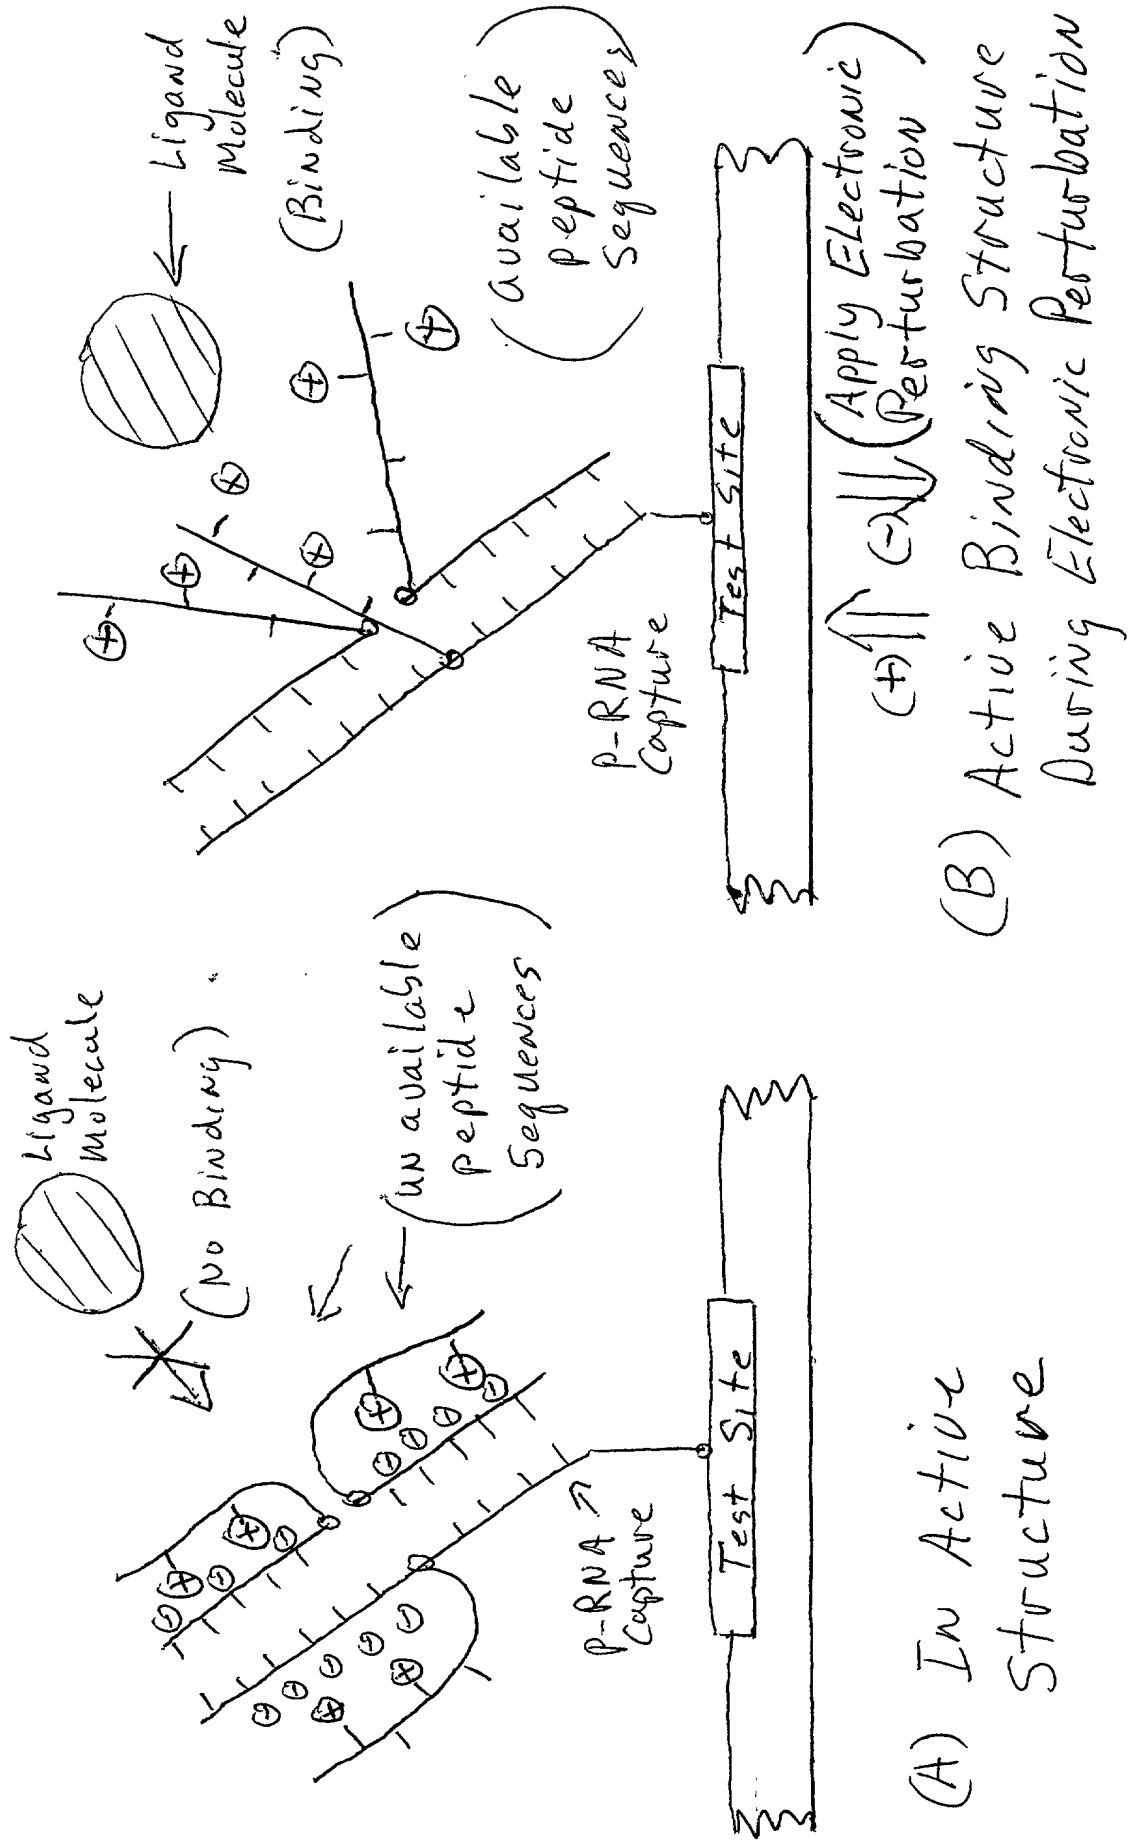 Ligand
Molecule
(No Binding)
(unavailable
peptide
Sequences)
P-RNA
Capture
Test Site
(A) In Active
Structure
Ligand
Molecule
(Binding)
(available
peptide
Sequences)
P-RNA
Capture
Test Site
(+) (-) (Apply Electronic
Perturbation)
(B) Active Binding Structure
During Electronic Perturbation